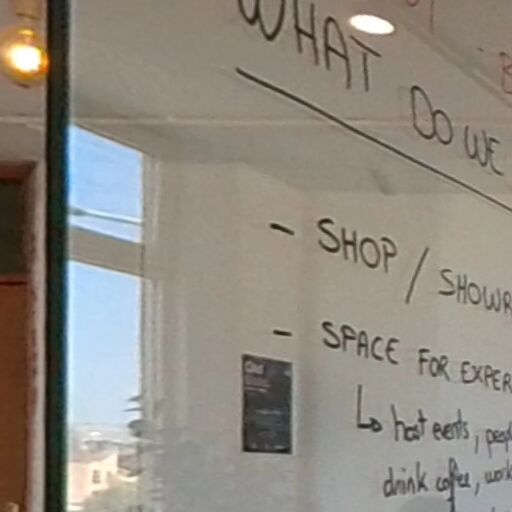 WHAT DO WE
- SHOP / SHOWR
- SPACE FOR EXPER
↳ host events, peopl
drink coffee, work